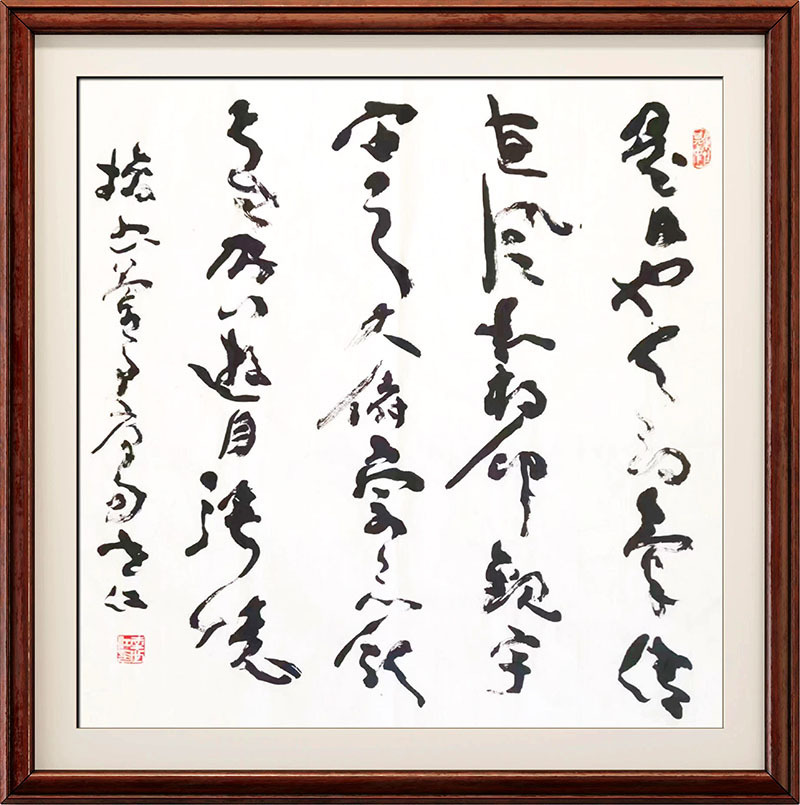 是日也天朗氣清
惠風和暢仰觀宇
宙之大俯察品類
之盛所以遊目騁懷
蘭亭序